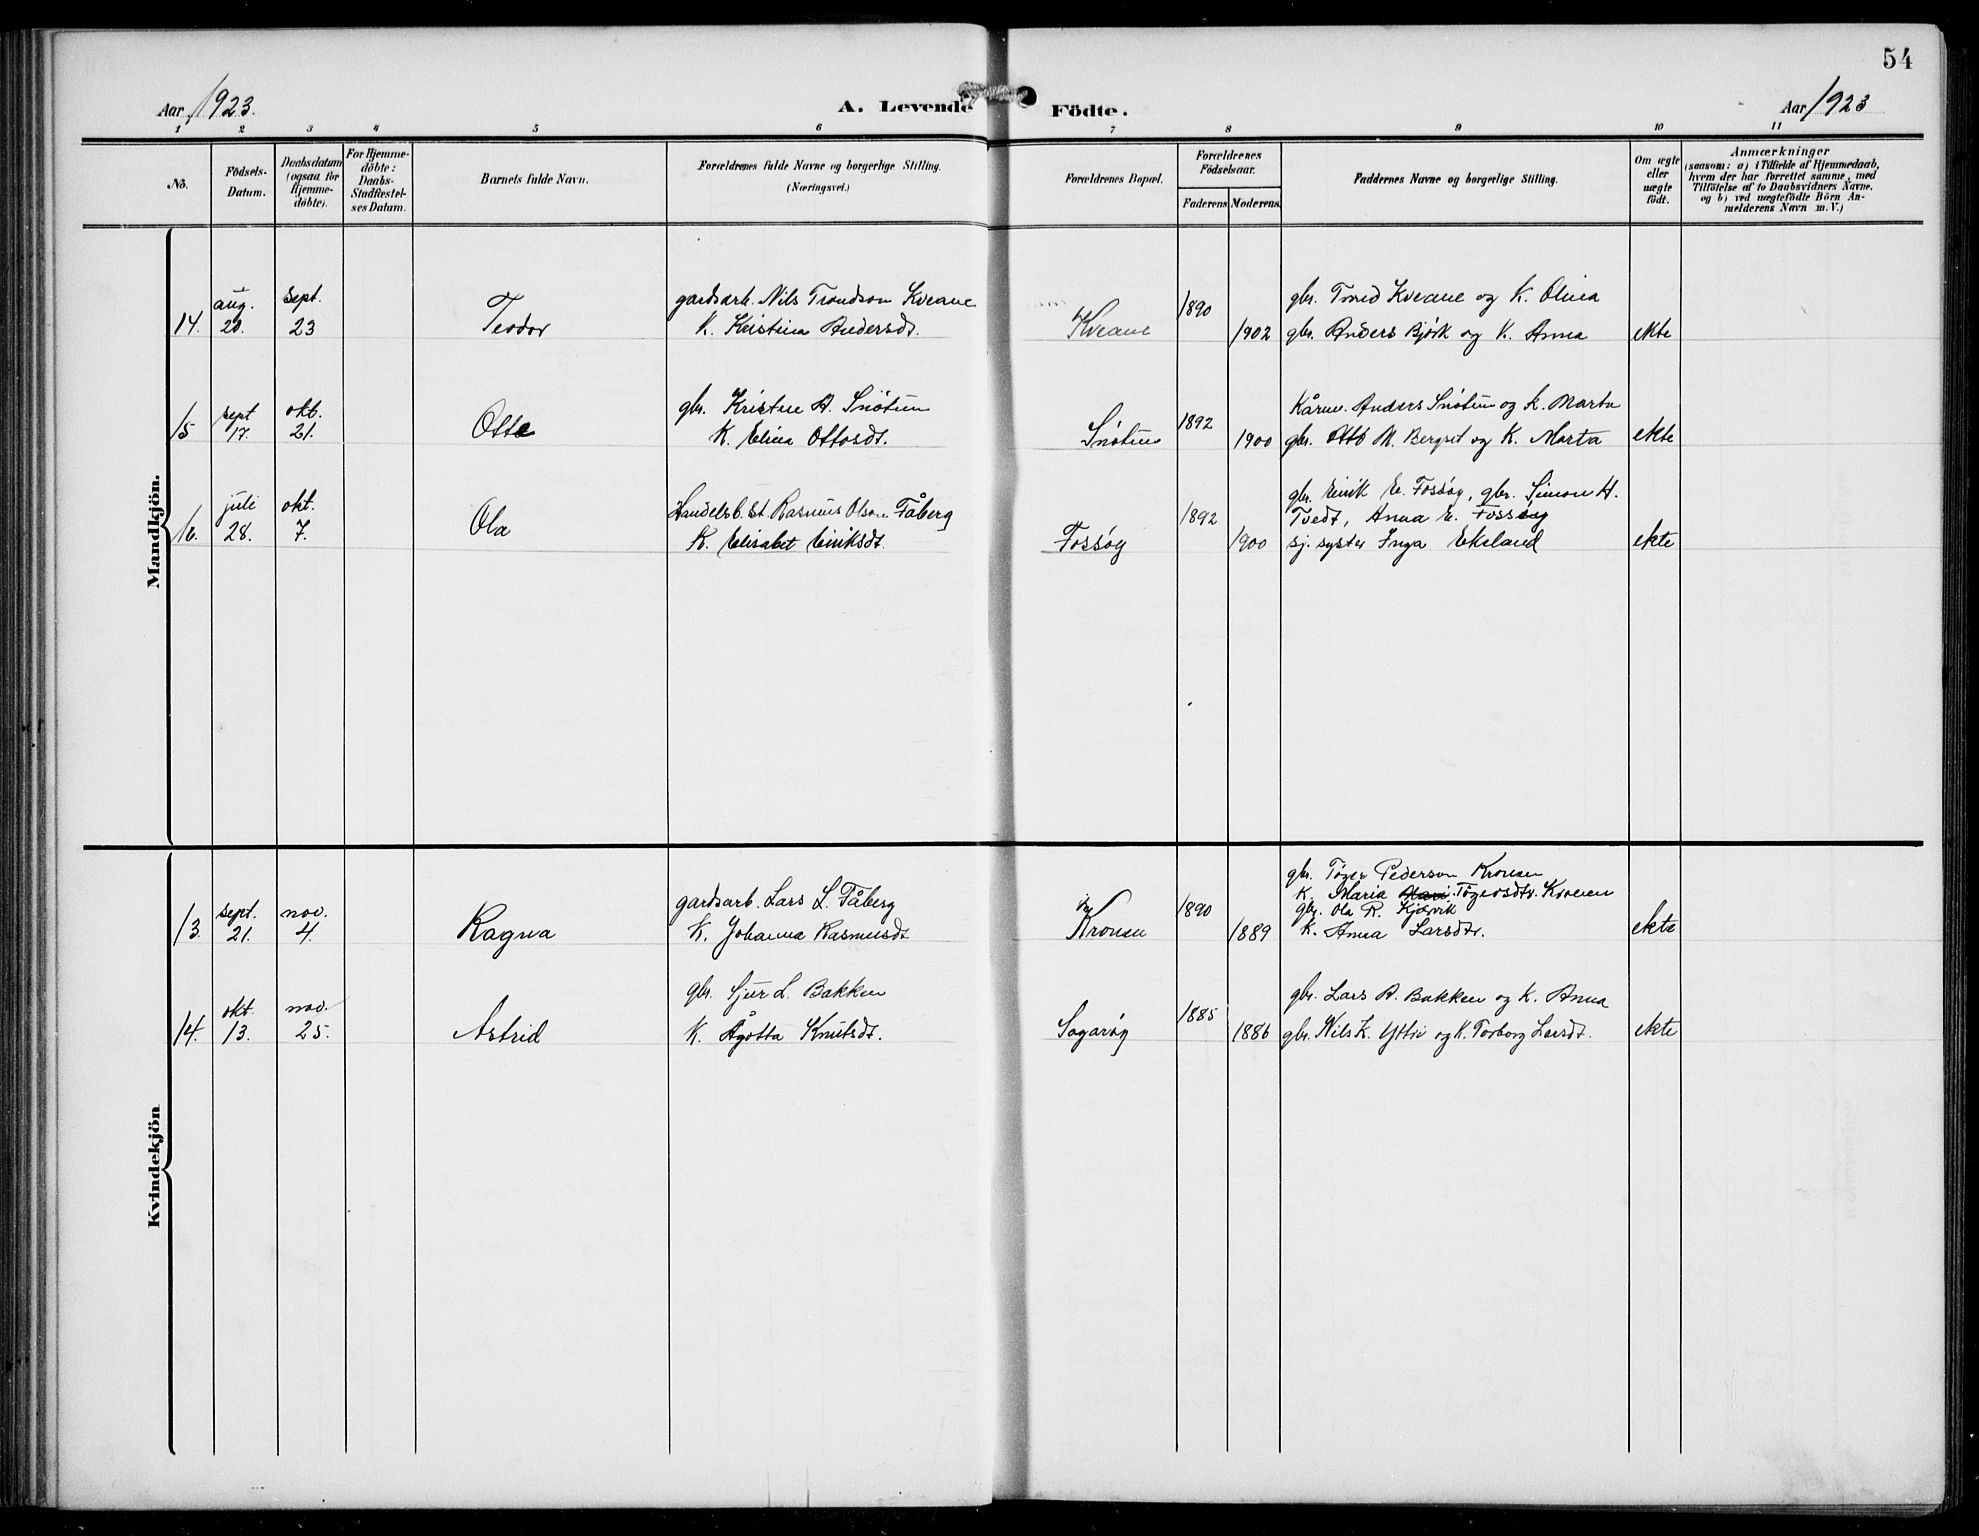 54
Aar 1923.
A. Levende Födte.
Aar 1923
1 2 3 4 5 6 7 8 9 10 11
No.
Födsels-
Datum.
Daabsdatum
(ogsaa for
Hjemme-
döbte).
For Hjemme-
döbte:
Daabs-
Stadfæstel-
ses Datum.
Barnets fulde Navn.
Forældrenes fulde Navne og borgerlige Stilling.
(Næringsvei.)
Forældrenes Bopæl.
Forældrenes
Födselsaar.
Faderens Moderens
Faddernes Navne og borgerlige Stilling.
Om ægte
eller
uægte
født.
Anmærkninger
(saasom: a) i Tilfælde af Hjemmedaab,
hvem der har forrettet samme, med
Tilföielse af to Daabsvidners Navne,
og b) ved uægtefödte Börn An-
melderens Navn m. V.)
Mandkjön.
aug. sept. gardsarb. Nils Trondson Kveane 1890 gbr. Trond Kveane og K. Olina
14. 20. 23 Teodor K. Kristina Andersdt. Kveane 1902 gbr. Anders Bjørk og K. Anna ekte
sept okt. gbr. Kristen A. Snøtun 1892 Kårm. Anders Snøtun og K. Marta
15 17. 21. Otto K. Elina Ottosdt. Snøtun 1900 gbr. Otto M. Bergset og K. Marta ekte
juli okt. Handelsb.st. Rasmus Olson Fåberg 1892 gbr. Eirik E. Fossøy, gbr. Simon H.
Tvedt, Anna E. Fossøy
16. 28. 7. Ola K. Elisabet Eiriksdt. Fossøy 1900 sj. syster Inga Ekeland ekte
Kvindekjön
gbr. Tøger Pederson Kronen
sept. nov. gardsarb. Lars L. Fåberg 1890 K. Maria Tøgersdtr. Kronen
gbr. Ola R. Kjærvik
13. 21. 4. Ragna K. Johanna Rasmusdt Kronen 1889 K. Anna Larsdtr. ekte
okt. nov. gbr. Sjur L. Bakken 1885 gbr. Lars A. Bakken og K. Anna
14. 13. 25. Astrid K. Ågotta Knutsdt. Sagarøy 1886 gbr. Nils K. Yttri og K. Torborg Larsdt. ekte